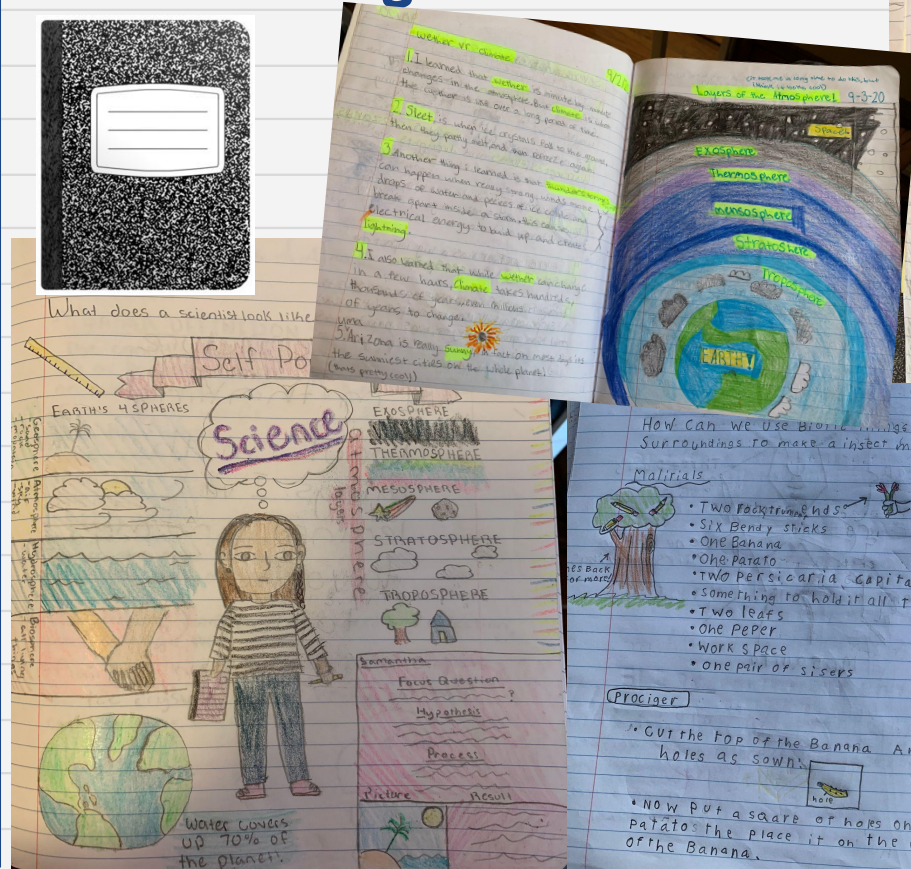 wether vs. climate
9/2/20
1. I learned that wether is minute by minute
changes in the atmosphere. But climate is what
the wether is like over a long period of time.
2. Sleet, is when ice crystals fall to the ground,
then they partly melt, and then refreeze again.
3. Another thing i learned is that
can happen when really strong winds
drops of water and peices of ice collide and
break apart inside a storm. this causes
electrical energy to build up and create
lightning.
4. I also learned that while wether can change
in a few hours, climate takes hundreds,
thousands of years even millions
of years to change.
Yuma
5. Arizona is really sunny, in fact on most days its
the sunniest cities on the whole planet!
(thats pretty cool)
(it took me a long time to do this, but
Layers of the Atmosphere! 9-3-20
Space!
Exosphere
Thermosphere
mensosphere
Stratoshere
Troposphere
EARTH!
What does a scientist look like
Self Po
EARTH'S 4 SPHERES
Geosphere
Atomosphere
Hydrosphere
-water
Biosphere
-all living
things
Science
atmosphere
layers
EXOSPHERE
THERMOSPHERE
MESOSPHERE
STRATOSPHERE
TROPOSPHERE
Samantha
Focus Question
?
Hypothesis
Process
Picture
Result
Water covers
up 70% of
the planet!
HOW can we use Biotic things
Surroundings to make a insect m
Matirials
• Two ends
• Six Bendy sticks
• One Banana
• One Patato
• Two Persicaria capita
• Something to hold it all t
• Two leafs
• One PePer
• Work space
• One pair of sisers
its Back
for more
Prociger
• Cut the top of the Banana An
holes as sown:
hole
• Now put a sqare of holes on
patatos the place it on the
of the Banana.